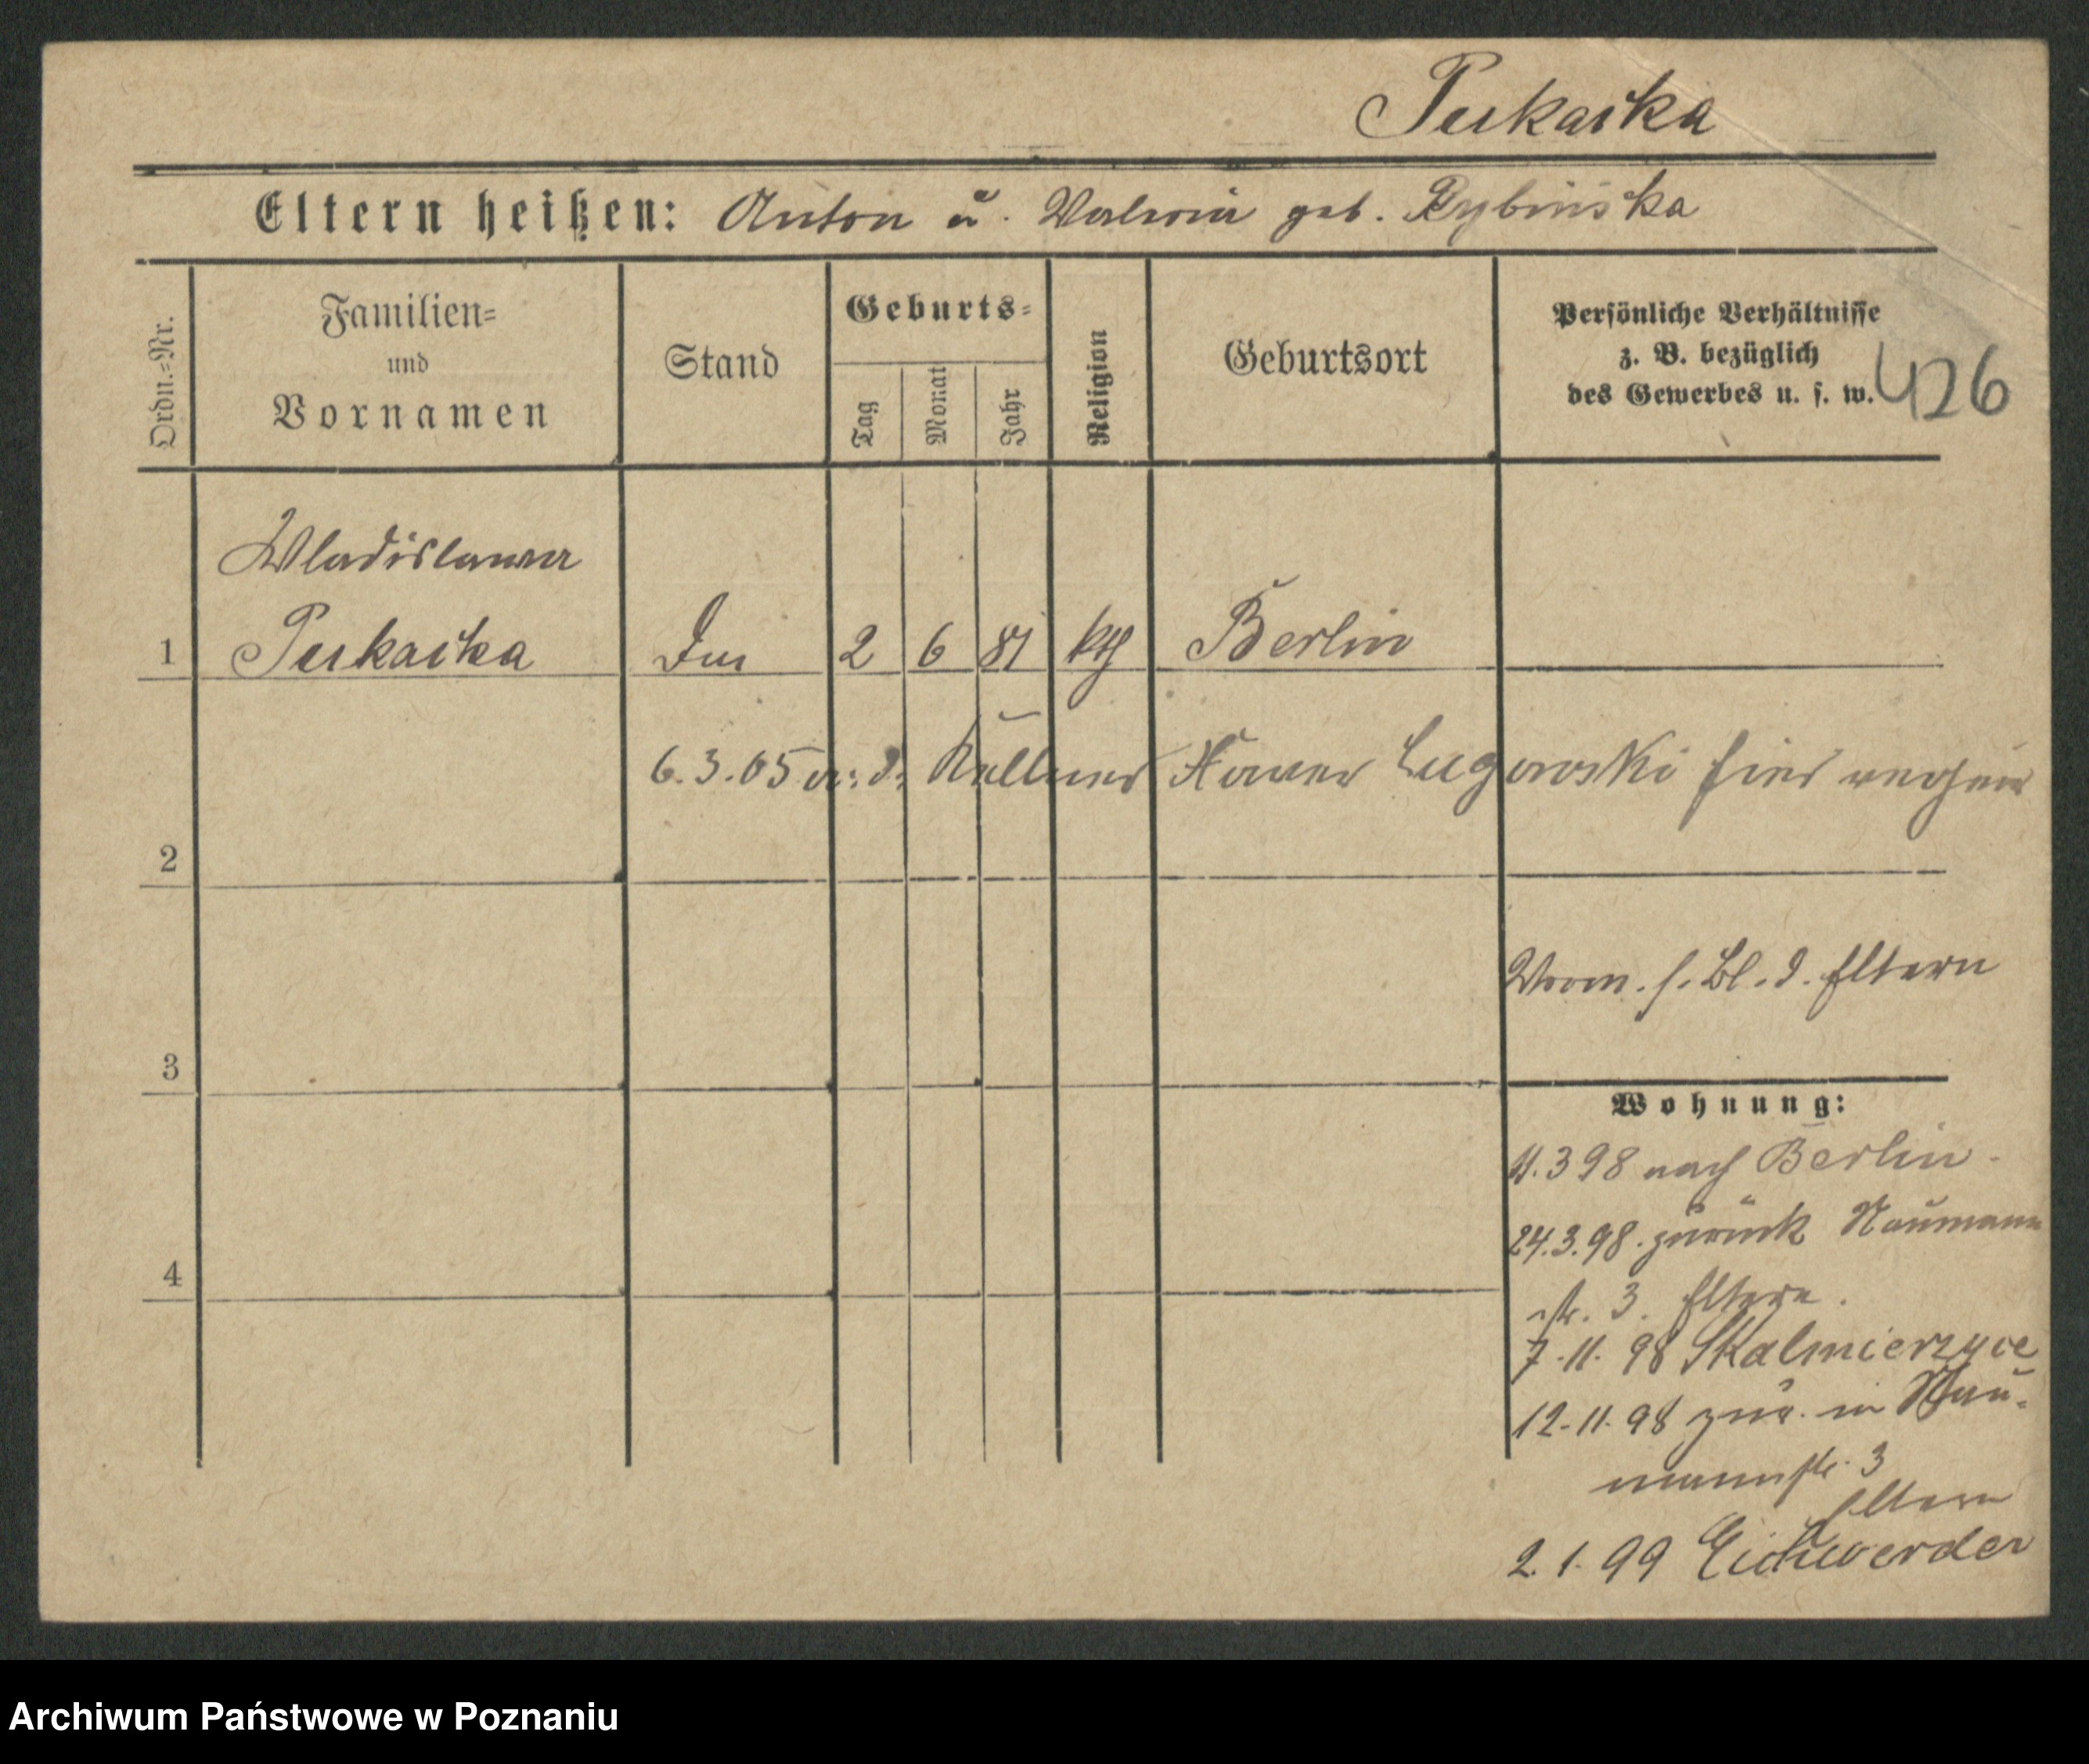 Pukacka
Eltern heißen: Anton u. Valeria geb. Rybinska
Ordn.-Nr.
Familien-
und
Vornamen
Stand
Geburts-
Tag
Monat
Jahr
Religion
Geburtsort
Persönliche Verhältnisse
z. B. bezüglich
des Gewerbes u. s. w.
426
Wladislawa
1 Pukacka 2 6 81 kth Berlin
6.3.05 Kellner Xaver Lugowski hier
2
Vorm. s. Bl. d. Eltern
3
Wohnung:
11.3 98 nach Berlin.
24.3.98. zurück Naumann
str. 3. Eltern.
4
7.11.98 Skalmierzyce
12.11.98 zur. in Nau-
mannstr. 3
Eltern
2.1.99 Eichwerder
Archiwum Państwowe w Poznaniu